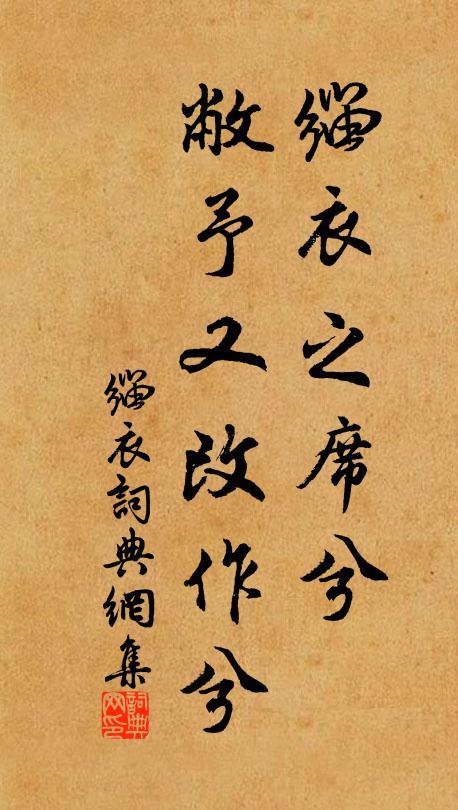 緇衣之席兮
敝予又改作兮
緇衣詞典網集
詞典网印